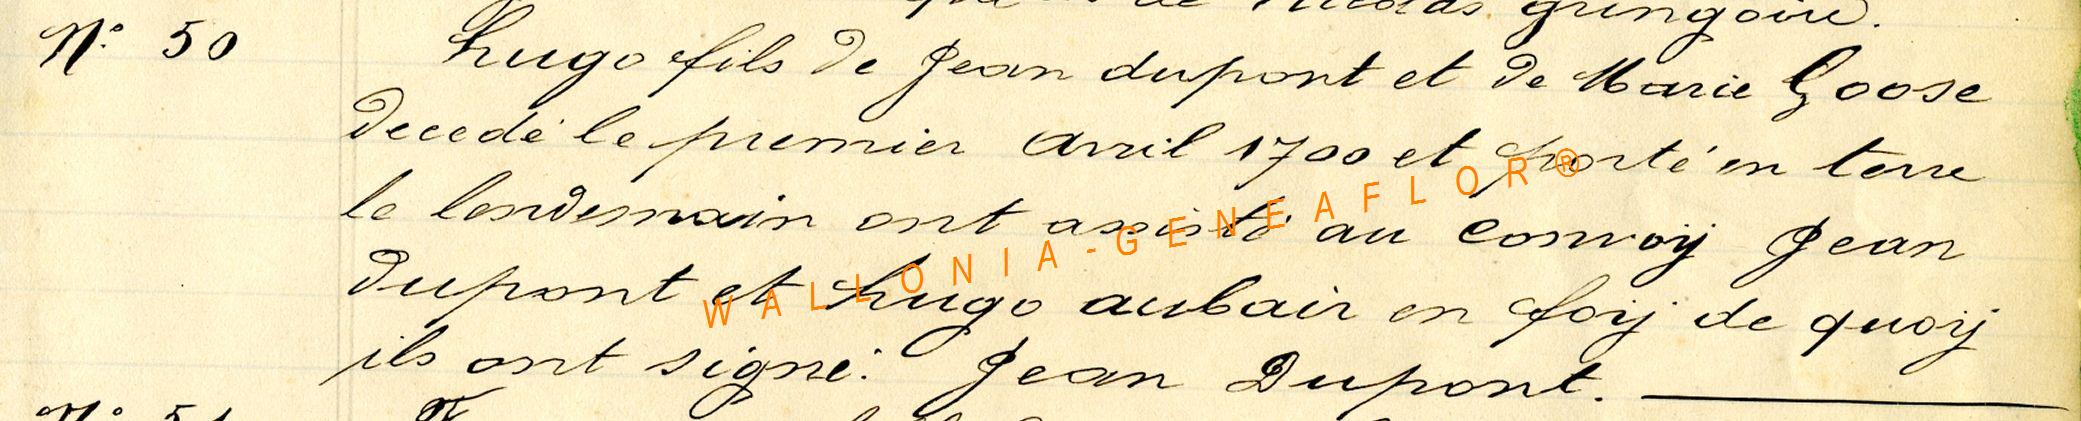 de Nicolas gringoire.
N° 50 hugo fils de Jean dupont et de Marie Goose
decedé le premier avril 1700 et porté en terre
le lendemain ont assisté au convoÿ Jean
dupont et hugo aubair en foÿ de quoÿ
ils ont signé. Jean Dupont.
WALLONIA-GENEAFLOR®
N° 51